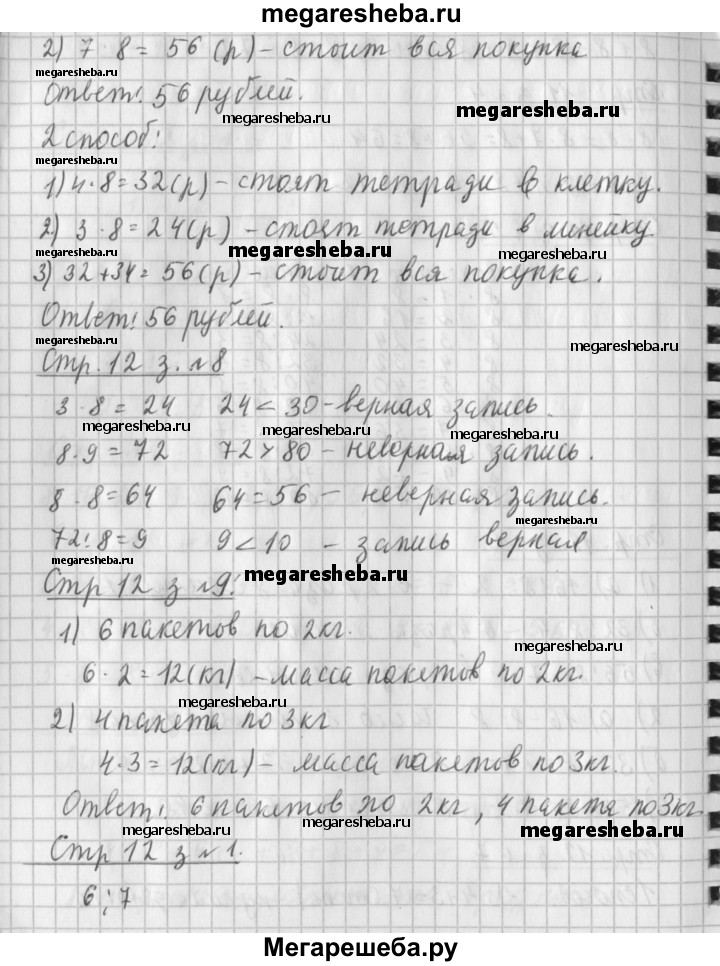 megaresheba.ru
2) 7 · 8 = 56 (р) - стоит вся покупка
megaresheba.ru
Ответ: 56 рублей.
megaresheba.ru
megaresheba.ru
2 способ:
megaresheba.ru
1) 4 · 8 = 32 (р) - стоят тетради в клетку.
megaresheba.ru
2) 3 · 8 = 24 (р) - стоят тетради в линейку.
megaresheba.ru
megaresheba.ru
3) 32 + 34 = 56 (р) - стоит вся покупка.
megaresheba.ru
Ответ: 56 рублей.
megaresheba.ru
megaresheba.ru
Стр. 12 з. №8
3 · 8 = 24 24 < 30 - верная запись.
megaresheba.ru
megaresheba.ru
megaresheba.ru
8 · 9 = 72 72 > 80 - неверная запись.
8 · 8 = 64 64 = 56 - неверная запись.
megaresheba.ru
72 : 8 = 9 9 < 10 - запись верная
megaresheba.ru
Стр 12 з №9.
megaresheba.ru
1) 6 пакетов по 2 кг.
megaresheba.ru
6 · 2 = 12 (кг) - масса пакетов по 2 кг.
megaresheba.ru
2) 4 пакета по 3 кг
megaresheba.ru
4 · 3 = 12 (кг) - масса пакетов по 3 кг.
megaresheba.ru
Ответ: 6 пакетов по 2 кг, 4 пакета по 3 кг.
megaresheba.ru
megaresheba.ru
megaresheba.ru
Стр 12 з №1.
megaresheba.ru
6 ; 7
Мегарешеба.ру